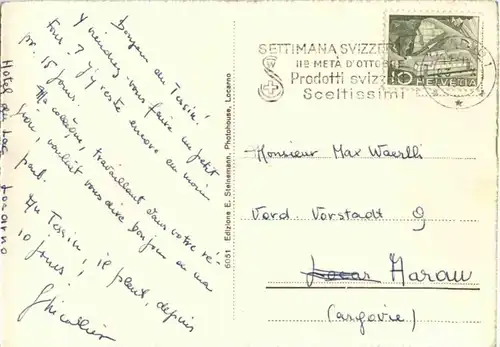 Bonjour du Tessin!
Y viendrez-vous faire un petit
tour? J'y reste encore au moins
pr. 15 jours.
Ma collègue, travaillant dans votre ré-
gion, voulait vous dire bonjour de ma
part.
Au Tessin, il pleut, depuis
10 jours!
Hôtel du Lac Locarno
6051 Edizione E. Steinemann, Photohouse, Locarno
SETTIMANA SVIZZER
IIª METÀ D'OTTOBRE
Prodotti svizz
Sceltissimi
10 HELVETIA
Monsieur Max Waerlli
Vord. Vorstadt 9
Locar Aarau
(Argovie)